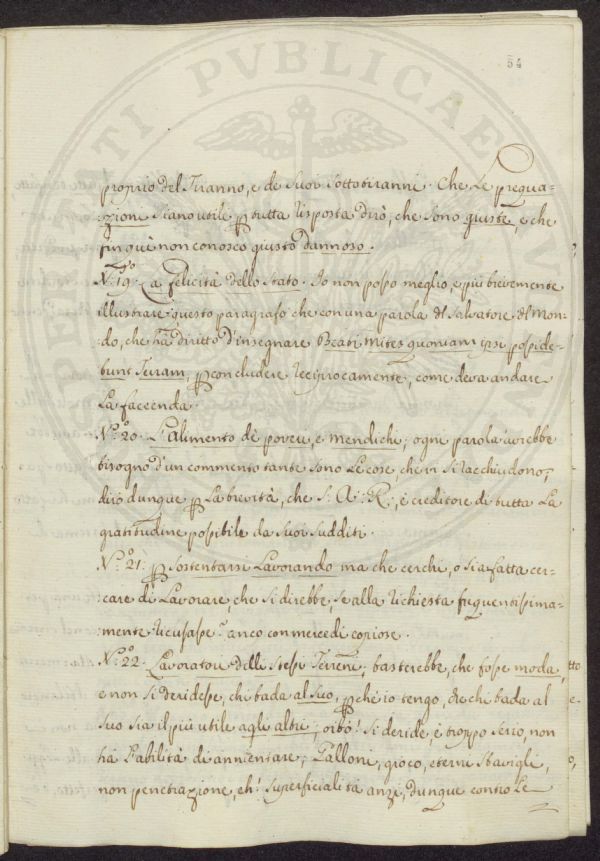 54
proprio del Tiranno, e de Suoi Sottotiranni. Che Le prequa=
=zione Siano utile p tutta risposta dirò, che sono giuste, e che
fin quì non conosco giusto dannoso.
N.º 19. La felicità dello Stato. Io non posso meglio, e più brievemente
illustrare questo paragrafo che con una parola del Salvatore del Mon=
=do, che ha diritto d'insegnare Beati mites quoniam ipsi posside=
bunt Terram, p concludere reciprocamente, come deva andare
La faccenda.
N.º 20. L'Alimento dè poveri, e mendichi; ogni parola avrebbe
bisogno d'un commento tante sono Le cose, che vi si racchiudono;
dirò dunque p La brevità, che S: A: R: è creditore di tutta La
gratitudine possibile da suoi sudditi.
N.º 21. p Sostentarsi Lavorando ma che cerchi, o sia fatta cer=
care di Lavorare, che si direbbe, se alla richiesta frequentissima=
=mente ricusasse? anco con mercedi copiose.
N.º 22. Lavoratori delli Stessi Terreni; basterebbe, che fosse moda,
e non si deridesse, chi bada al Suo, pchè io tengo, che chi bada al
Suo sia il più utile agli altri; oibò! Si deride, è troppo serio, non
ha l'abilità di annientare; Palloni, gioco, eterni Sbavigli,
non penetrazione, eh! Superficialità anzi, dunque contro Le